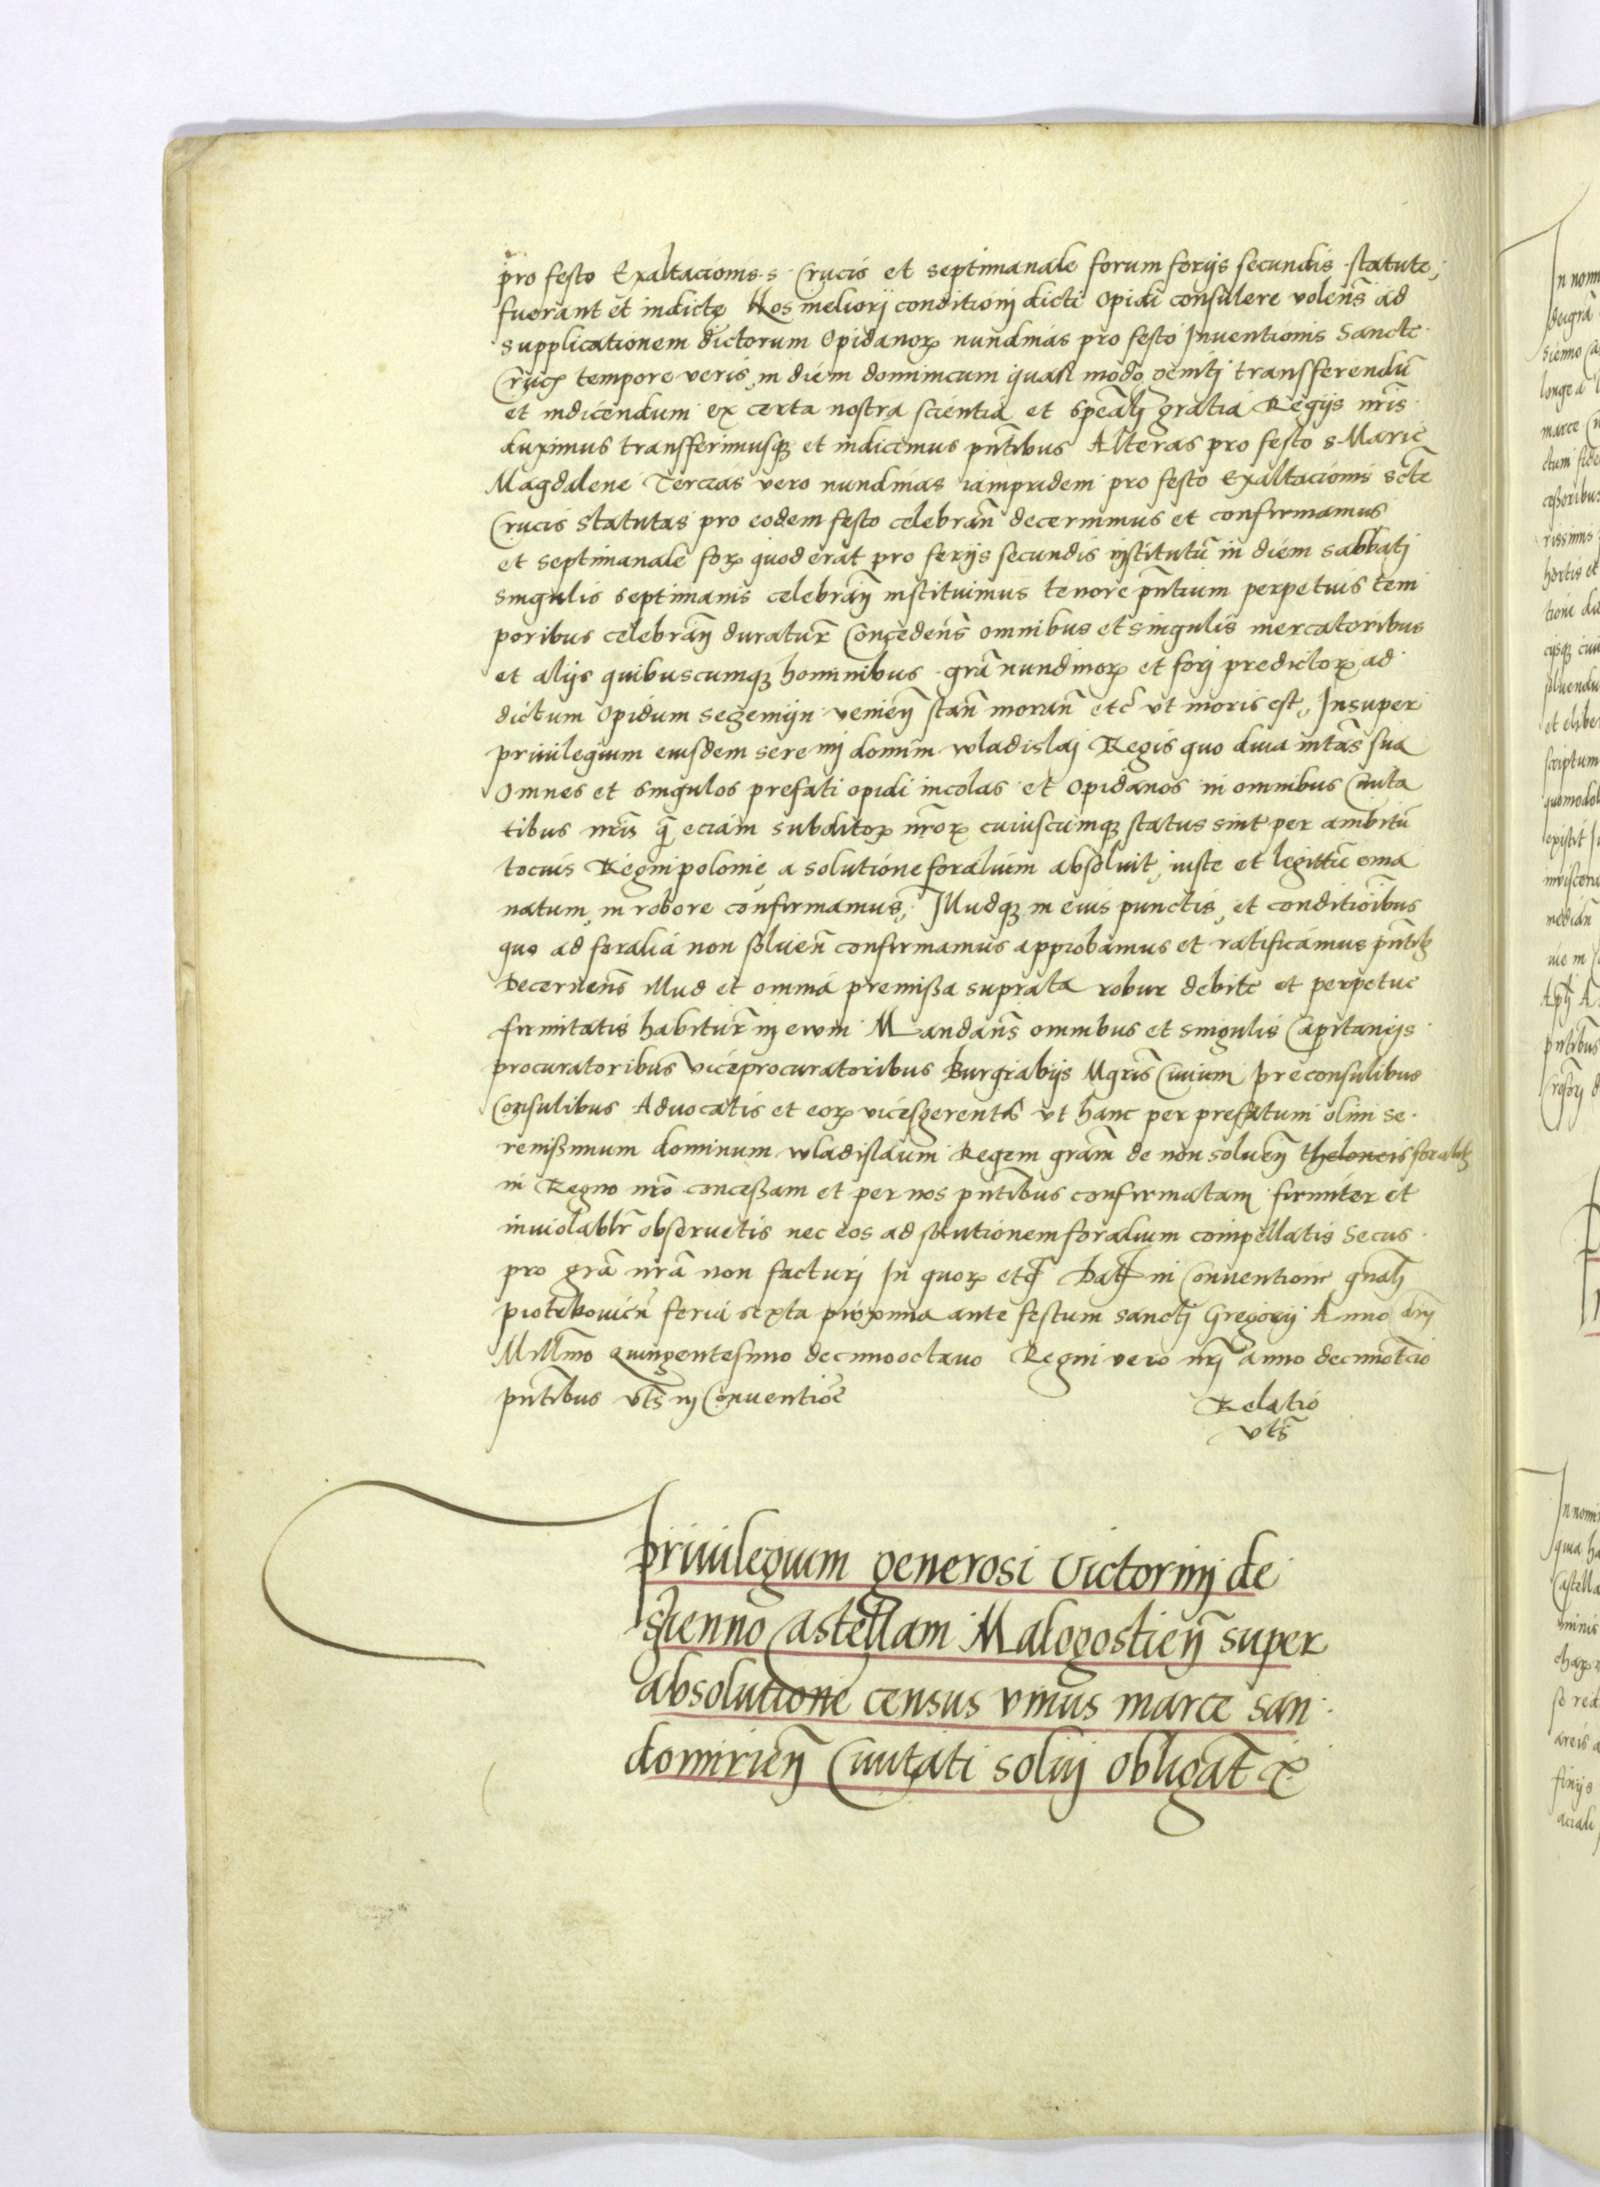 pro festo Exaltacionis s. Crucis et septimanale forum ferijs secundis statute,
fuerant et indicte Nos meliorj conditionj dicti Opidi consulere volens̄ ad
supplicationem dictorum Opidanorꝝ nundinas pro festo Inventionis Sancte
Crucꝭ tempore veris, in diem dominicum quasi modo genitj transferendū
et indicendum ex certa nostra scientia et spēalj gratia Regijs nr̄is
duximus transferimusqꝫ et indicimus pn̄tibus Alteras pro festo s. Marie
Magdalene Tercias vero nundinas iampridem pro festo Exaltacionis sctē
Crucis statutas pro eodem festo celebran̄ decernimus et confirmamus
et septimanale forꝝ quod erat pro ferijs secundis institutū in diem sabbatj
singulis septimanis celebran̄ instituimus tenore pn̄tium perpetuis tem
poribus celebran̄ duratur̄ Concedens̄ omnibus et singulis mercatoribus
et alijs quibuscumqꝫ hominibus grā nundinorꝝ et forj predictorꝝ ad
dictum Opidum Segemijn venien̄ stan̄ moran̄ etc̄ vt moris est, Insuper
privilegium eiusdem serenī domini wladislaj Regis quo diva mtās sua
Omnes et singulos prefati opidi incolas et Opidanos in omnibus Civita
tibus nr̄is q̄ eciam subditorꝝ nr̄orꝝ cuiuscumqꝫ status sint per ambitū
tocius Regni polonie, a solutione foralium absoluit, iuste et legittīe ema
natum, in robore confirmamus, Illudqꝫ in eius punctis, et conditiōibus
quo ad foralia non soluen̄ confirmamus approbamus et ratificamus pn̄tibꝫ
Decernens̄ illud et omnia premissa suprata robur debite et perpetue
firmitatis habitur̄ in evum Mandans̄ omnibus et singulis Capitaneijs
procuratoribus viceprocuratoribus Burgrabijs Mgrīs Civium preconsulibus
Consulibus Advocatis et eorꝝ vicesgerentꝭ vt hanc per prefatum olim se
renissimum dominum wladislaum Regem grām de non soluen̄ theloneis foralibꝫ
in Regno nr̄o concessam et per nos pn̄tibus confirmatam firmiter et
inviolablr̄ observetis nec eos ad solutionem foralium compellatis Secus
pro grā nr̄a non facturj In quorꝝ etc̄ Datꝭ in Conventione gn̄alj
piotrkovien̄ feria sexta proxima ante festum sanctj Gregorij Anno dnj
Millm̄o quingentesimo decimooctavo Regni vero nr̄j anno decimotcīo
pn̄tibus vts̄ in Conventiōe
Relatio
vts̄
Privilegium generosi Victorinj de
Sienno Castellani Malogostien̄ super
absolutione census vnius marce san
domirien̄ Civitati solvj obligat̄